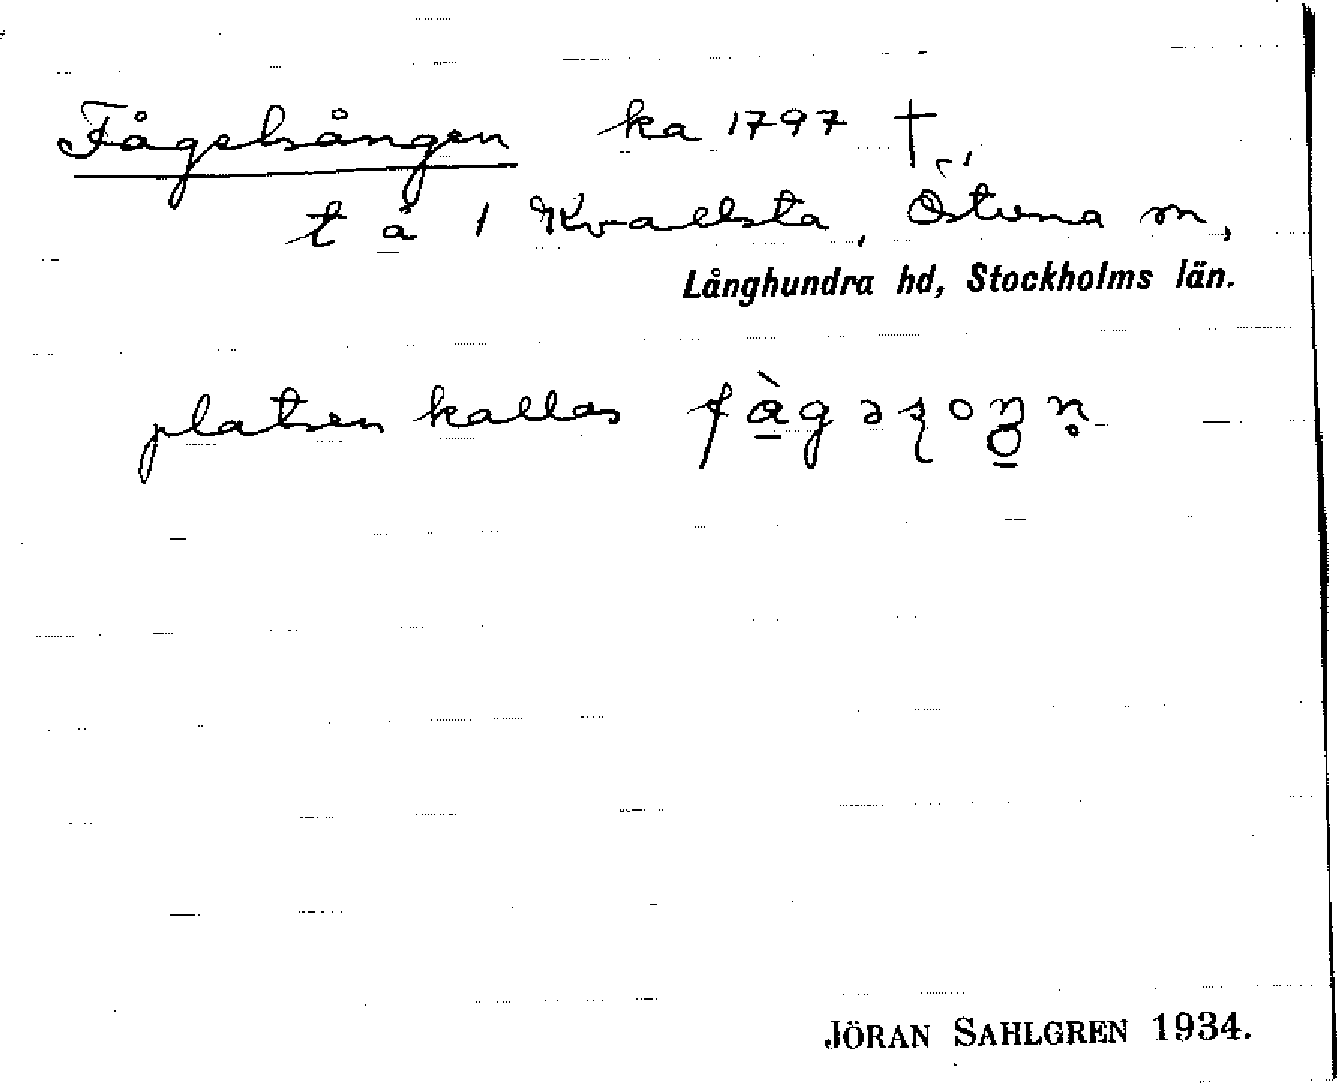 Fågelsången ka 1797 †
t å 1 Kvallsta, Östuna sn,
Långhundra hd, Stockholms län.
platsen kallas
JÖRAN SAHLGREN 1934.